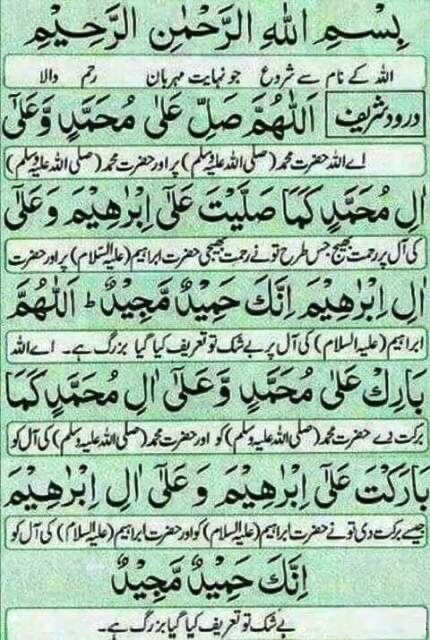 بِسْمِ اللهِ الرَّحْمٰنِ الرَّحِيْمِ
اللہ کے نام سے شروع جو نہایت مہربان رحم والا
درود شریف اَللّٰهُمَّ صَلِّ عَلٰى مُحَمَّدٍ وَّعَلٰٓى
اے اللہ حضرت محمد (صلی اللہ علیہ وسلم) پر اور حضرت محمد (صلی اللہ علیہ وسلم)
اٰلِ مُحَمَّدٍ كَمَا صَلَّيْتَ عَلٰٓى اِبْرٰهِيْمَ وَعَلٰٓى
کی آل پر رحمت بھیج جس طرح تو نے رحمت بھیجی حضرت ابراہیم (علیہ السلام) پر اور حضرت
اٰلِ اِبْرٰهِيْمَ اِنَّكَ حَمِيْدٌ مَّجِيْدٌ ط اَللّٰهُمَّ
ابراہیم (علیہ السلام) کی آل پر بے شک تو تعریف کیا گیا بزرگ ہے۔ اے اللہ
بَارِكْ عَلٰى مُحَمَّدٍ وَّعَلٰٓى اٰلِ مُحَمَّدٍ كَمَا
برکت دے حضرت محمد (صلی اللہ علیہ وسلم) کو اور حضرت محمد (صلی اللہ علیہ وسلم) کی آل کو
بَارَكْتَ عَلٰٓى اِبْرٰهِيْمَ وَعَلٰٓى اٰلِ اِبْرٰهِيْمَ
جیسے برکت دی تو نے حضرت ابراہیم (علیہ السلام) کو اور حضرت ابراہیم (علیہ السلام) کی آل کو
اِنَّكَ حَمِيْدٌ مَّجِيْدٌ
بے شک تو تعریف کیا گیا بزرگ ہے۔